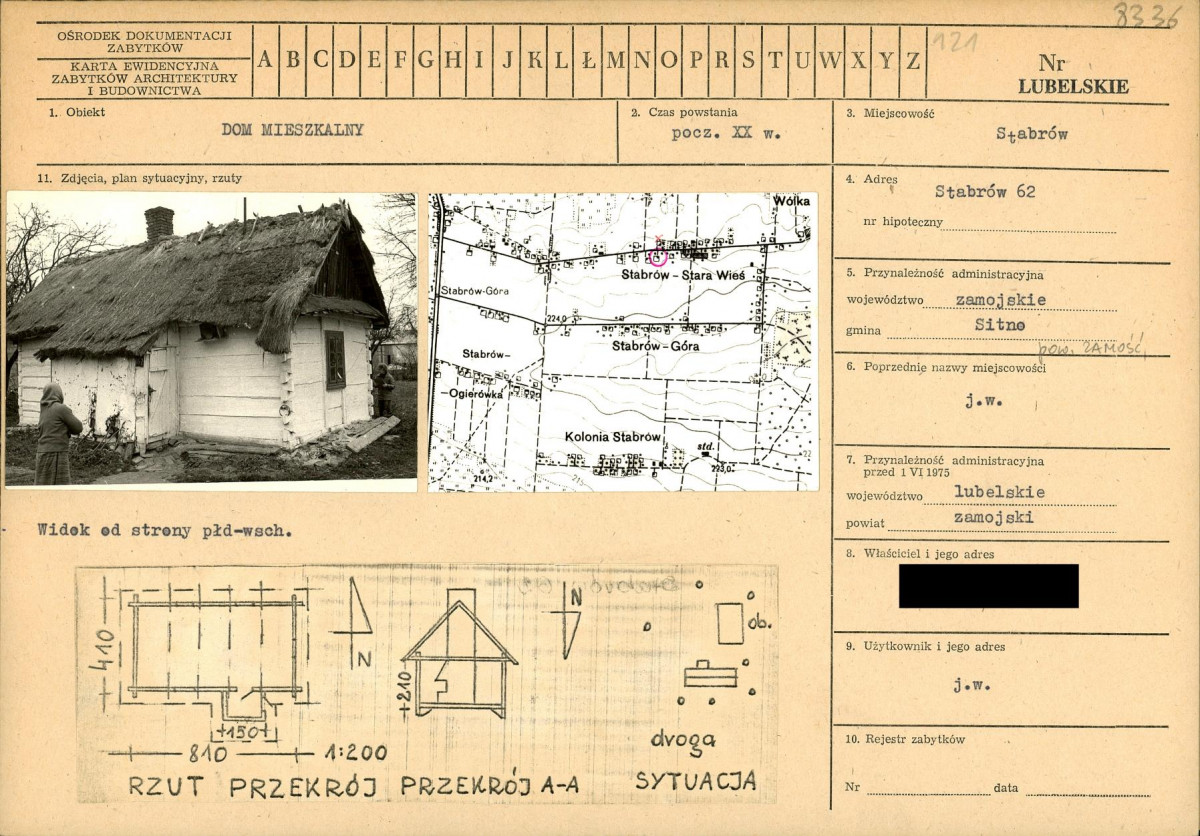 8336
OŚRODEK DOKUMENTACJI
ZABYTKÓW
KARTA EWIDENCYJNA
ZABYTKÓW ARCHITEKTURY
I BUDOWNICTWA
A B C D E F G H I J K L Ł M N O P R S T U W X Y Z
121
Nr
LUBELSKIE
1. Obiekt
DOM MIESZKALNY
2. Czas powstania
pocz. XX w.
3. Miejscowość
Stabrów
11. Zdjęcia, plan sytuacyjny, rzuty
4. Adres
Stabrów 62
nr hipoteczny
5. Przynależność administracyjna
województwo zamojskie
gmina Sitno
pow. ZAMOŚĆ
6. Poprzednie nazwy miejscowości
j.w.
7. Przynależność administracyjna
przed 1 VI 1975
województwo lubelskie
powiat zamojski
8. Właściciel i jego adres
9. Użytkownik i jego adres
j.w.
10. Rejestr zabytków
Nr data
Wólka
Stabrów-Stara Wieś
Stabrów-Góra
224,0
Stabrów-Góra
Stabrów-
-Ogierówka
Kolonia Stabrów
std.
214,2
223,0
Widok od strony płd-wsch.
410
N
+210
N
ob.
150
810
1:200
droga
RZUT PRZEKRÓJ PRZEKRÓJ A-A SYTUACJA